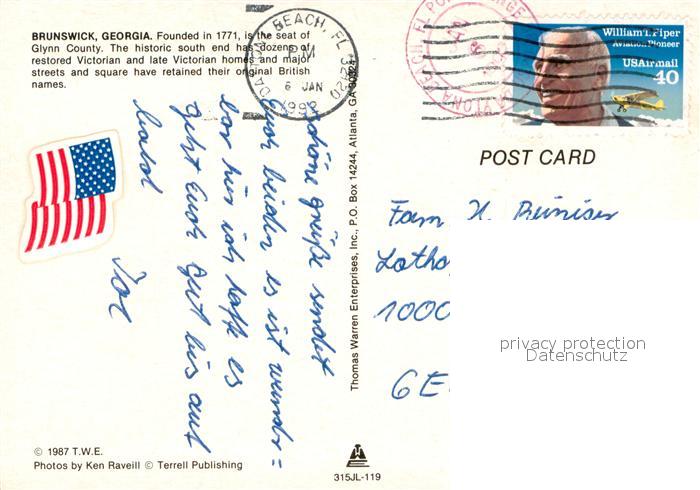 BRUNSWICK, GEORGIA. Founded in 1771, is the seat of
Glynn County. The historic south end has dozens of
restored Victorian and late Victorian homes and major
streets and square have retained their original British
names.
BEACH, FL
PM
6 JAN
1992
William T. Piper
Aviation Pioneer
USAirmail
40
POST CARD
schöne grüße sendet
Euch beiden es ist wunder=
bar hier ich hoffe es
geht Euch gut bis auf
bald
Thomas Warren Enterprises, Inc., P.O. Box 14244, Atlanta, GA 30324
Fam H.
1000
GE
privacy protection
Datenschutz
© 1987 T.W.E.
Photos by Ken Raveill © Terrell Publishing
315JL-119